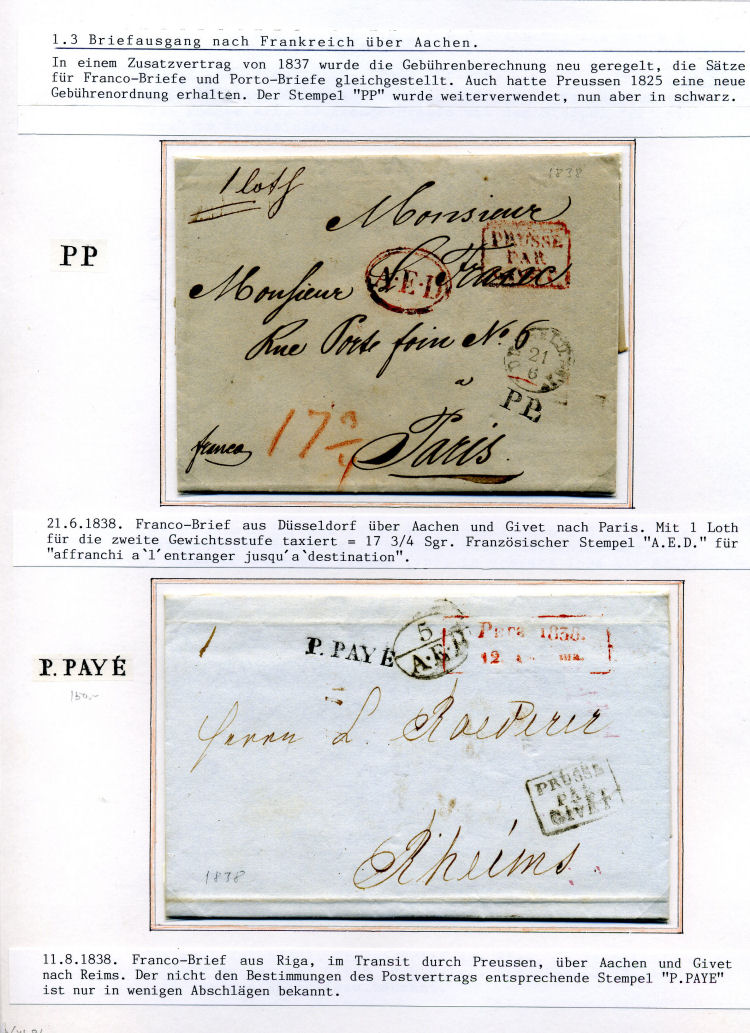 1.3 Briefausgang nach Frankreich über Aachen.
In einem Zusatzvertrag von 1837 wurde die Gebührenberechnung neu geregelt, die Sätze
für Franco-Briefe und Porto-Briefe gleichgestellt. Auch hatte Preussen 1825 eine neue
Gebührenordnung erhalten. Der Stempel "PP" wurde weiterverwendet, nun aber in schwarz.
1838
1 loth
Monsieur
PP
PRUSSE
PAR
A.E.D.
L. Franc
Monsieur
Rue Porte foin No. 6
21
6
à
P.P.
17 3/4
franco
Paris.
21.6.1838. Franco-Brief aus Düsseldorf über Aachen und Givet nach Paris. Mit 1 Loth
für die zweite Gewichtsstufe taxiert = 17 3/4 Sgr. Französischer Stempel "A.E.D." für
"affranchi a`l´entranger jusqu´a`destination".
5
A.E.D.
1838.
12
P. PAYÉ
P. PAYÉ
150.-
Herrn L. Roederer
PRUSSE
PAR
GIVET
Rheims
1838
11.8.1838. Franco-Brief aus Riga, im Transit durch Preussen, über Aachen und Givet
nach Reims. Der nicht den Bestimmungen des Postvertrags entsprechende Stempel "P.PAYE"
ist nur in wenigen Abschlägen bekannt.